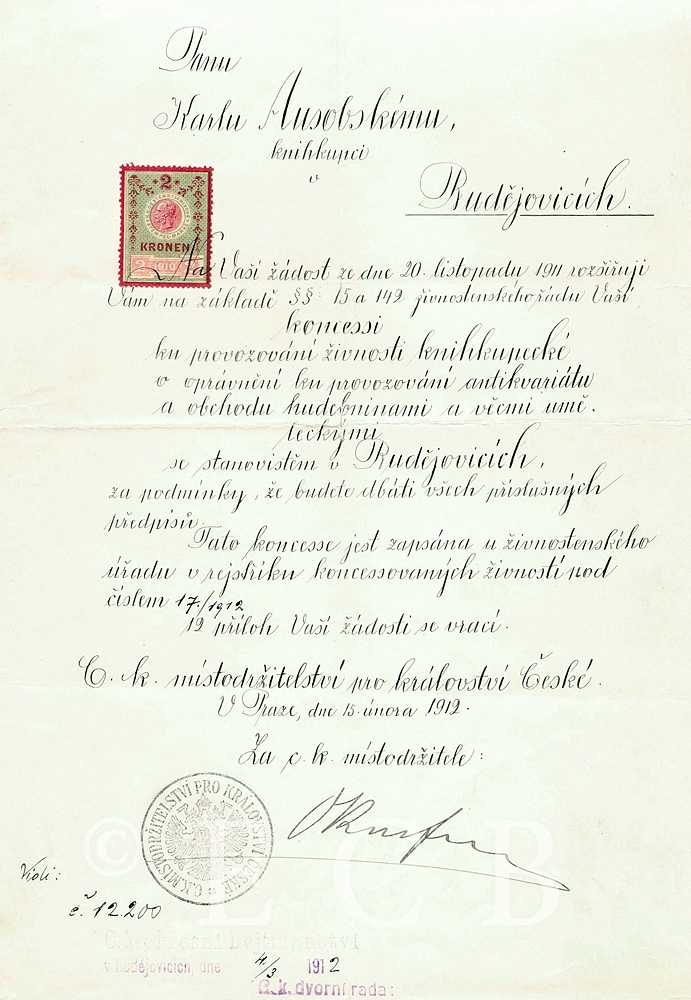 Panu
Karlu Ausobskému,
knihkupci
v
Budějovicích.
2
KRONEN
2 1910 2
Na Vaší žádost ze dne 20. listopadu 1911 rozšiřuji
Vám na základě §§ 15 a 142 živnostenského řádu Vaši
koncessi
ku provozování živnosti knihkupecké
o oprávnění ku provozování antikvariátu
a obchodu hudebninami a věcmi umě-
leckými
se stanovištěm v Budějovicích,
za podmínky, že budete dbáti všech příslušných
předpisů.
Tato koncesse jest zapsána u živnostenského
úřadu v rejstříku koncessovaných živností pod
číslem 17/1912
12 příloh Vaší žádosti se vrací.
C. k. místodržitelství pro království České.
V Praze, dne 15. února 1912.
Za c. k. místodržitele:
C.K. MÍSTODRŽITELSTVÍ PRO KRÁLOVSTVÍ ČESKÉ
© ECB
č. 12.200
C. k. okresní hejtmanství
v Budějovicích, dne 4/3 1912
C. k. dvorní rada: